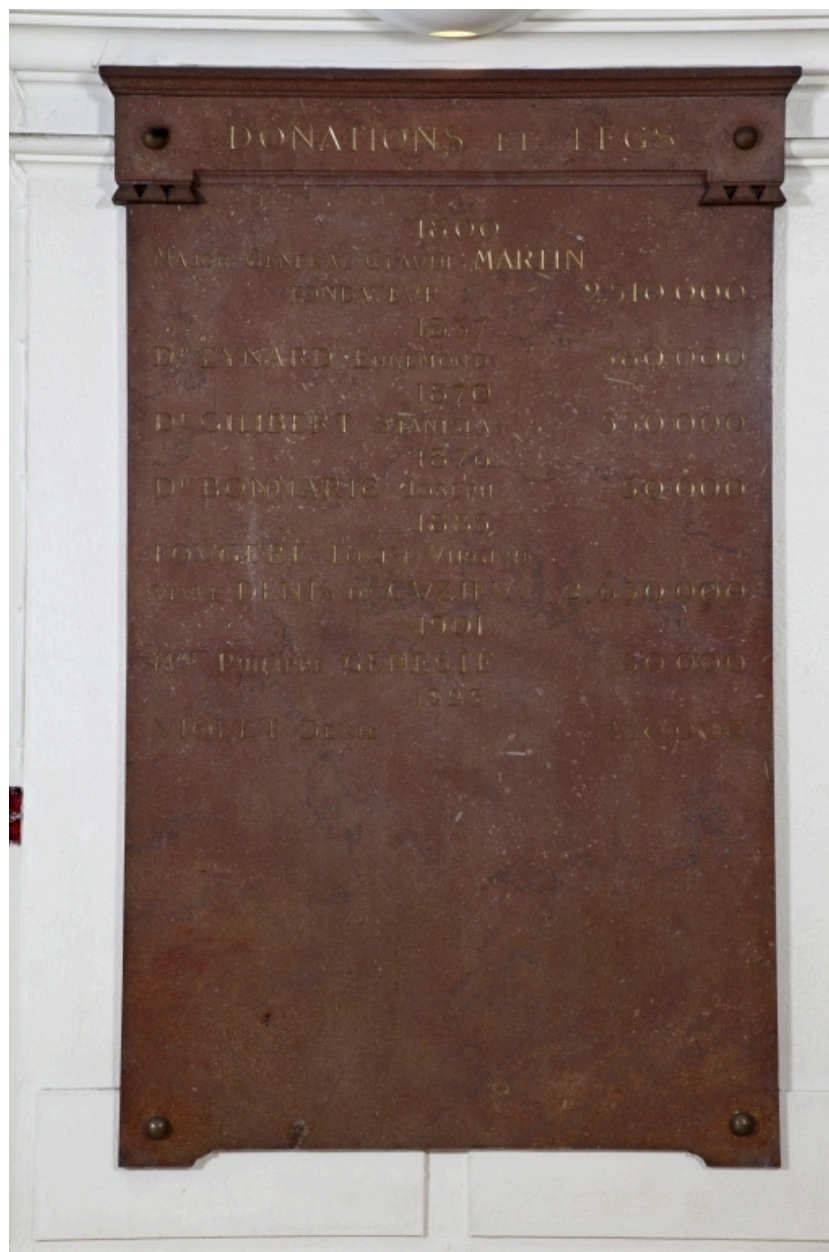 DONATIONS ET LEGS
1800
MAJOR GENERAL CLAUDE MARTIN
FONDATEUR 2.510.000
1837
DR EYNARD ENNEMOND
1870
DR GILIBERT STANISLAS 330.000
1876
DR BONNARIC JOSEPH 50.000
1885
POUGERE LOUISE VIRGINIE
VEUVE DENIS DE CUZIEU 2.630.000
1901
PHILIPPE GENESTE 50.000
1923
VIOLET DENIS